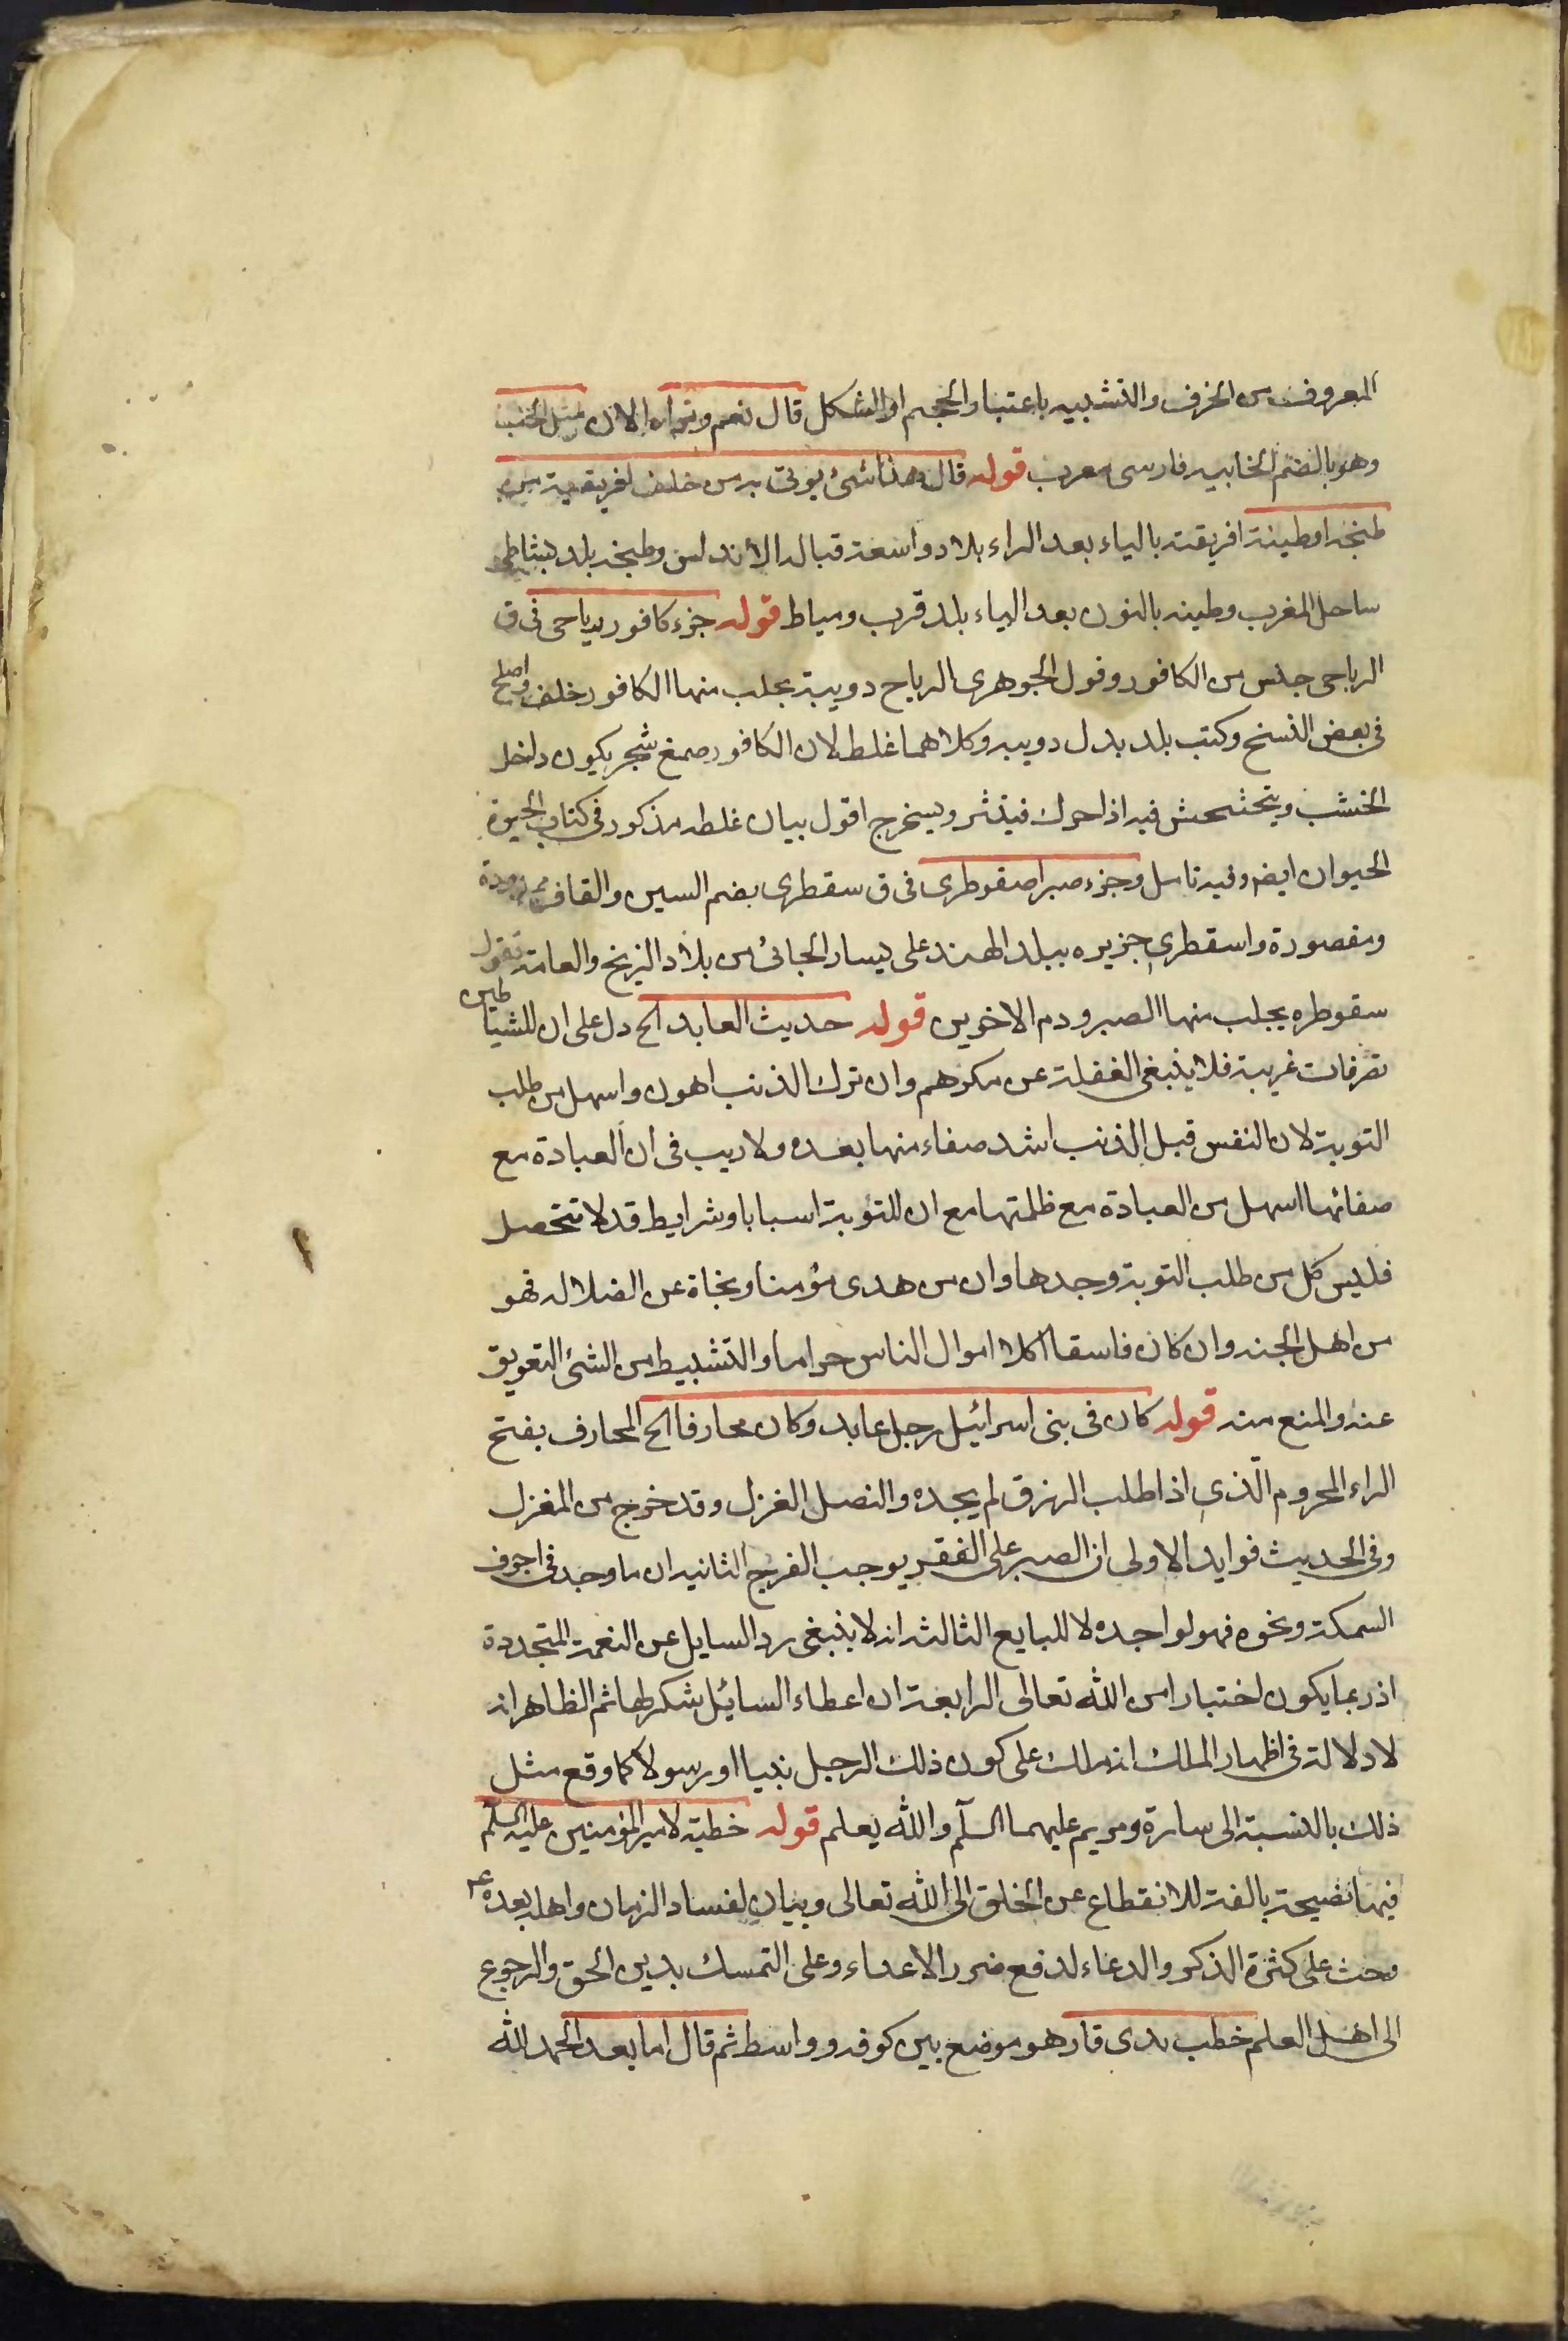 المعروف من الخزف والتشبيه باعتبار الحجم او الشكل قال نعم وتراه الان مثل الخنب
وهو بالضم الخابيه فارسى معرب قوله قال وهذا شئ يوتى به من خلف افريقية من
طنجه او طينة افريقيه بالياء بعد الراء بلاد واسعة قباله الأندلس وطنجه بلد بشاطى
ساحل المغرب وطينه بالنون بعد الياء بلد قرب دمياط قوله جزء كافور رياحى فى ق
الرياحى جنس من الكافور وقول الجوهرى الرياح دويبة يجلب منها الكافور خلف واصلح
فى بعض النسخ وكتب بلد بدل دويبه وكلاهما غلط لان الكافور صمغ شجر يكون داخل
الخشب ويتخشخش فيه اذا حرك فينثر ويستخرج اقول بيان غلطه مذكور فى كتاب الحيوة
الحيوان ايضا وفيه تامل وجزء صبر اصقوطرى فى ق سقطرى بضم السين والقاف ممدودة
ومقصورة واسقطرى جزيره ببلد الهند على يسار الجائى من بلاد الزنج والعامة تقول
سقوطره يجلب منها الصبر ودم الاخوين قوله حديث العابد الخ دل على ان للشياطين
تصرفات غريبة فلا ينبغى الغفلة عن مكرهم وان ترك الذنب اهون واسهل من طلب
التوبة لان النفس قبل الذنب اشد صفاء منها بعده ولا ريب فى ان العبادة مع
صفائها اسهل من العبادة مع ظلمتها مع ان للتوبة اسبابا وشرايط قد لا تتحصل
فليس كل من طلب التوبة وجدها وان من هدى مؤمنا ونجاة عن الضلاله فهو
من اهل الجنه وان كان فاسقا اكلا اموال الناس حراما والتثبيط من الشئ التعويق
عنه والمنع منه قوله كان فى بنى اسرائيل رجل عابد وكان محارفا الخ المحارف بفتح
الراء المحروم الّذى اذا طلب الرزق لم يجده والنصل الغزل وقد خرج من المغزل
وفى الحديث فوايد الاولى ان الصبر على الفقر يوجب الفرج الثانيه ان ما وجد فى اجوف
السمكة ونحوه فهو لواجده لا للبايع الثالثه انه لا ينبغى رد السايل عن النعمة المتجددة
اذ ربما يكون اختبارا من الله تعالى الرابعة ان اعطاء السائل شكر لها ثم الظاهر انه
لا دلالة فى اظهار الملك انه ملك على كون ذلك الرجل نبيا او رسولا كما وقع مثل
ذلك بالنسبة الى سارة ومريم عليهما السلم والله يعلم قوله خطبة لامير المؤمنين عليه السلم
فيها نصيحة بالغة للانقطاع عن الخلق الى الله تعالى وبيان لفساد الزمان واهله بعده ع
وحث على كثرة الذكر والدعاء لدفع ضرر الاعداء وعلى التمسك بدين الحق والرجوع
الى اهل العلم خطب بذى قار هو موضع بين كوفه وواسط ثم قال اما بعد الحمد الله